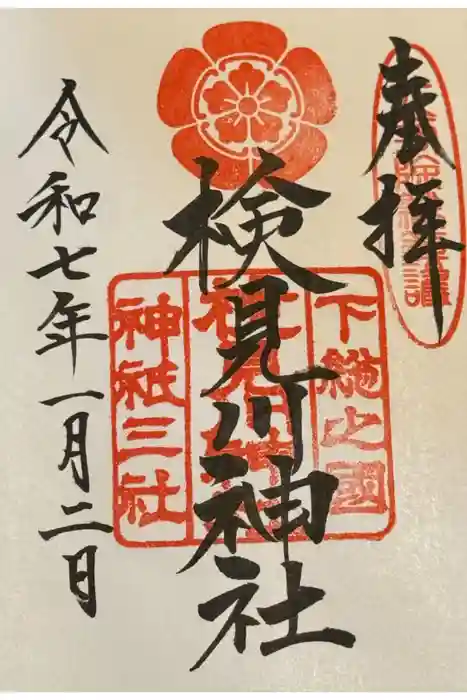 奉拝
検見川神社
下総之國
神祇三社
令和七年一月二日